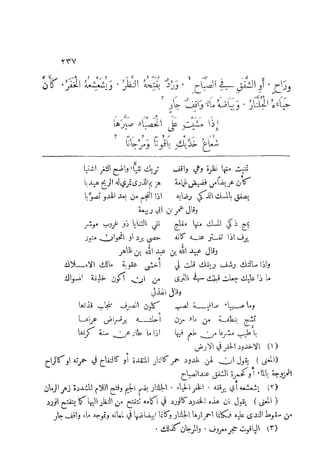 ٢٣٧
وراح ، أو الشفق في الصباح ¹ . ورد يفتحه النظر . ويشعشعه الخفر . كأن
حياءه الجلنار . وبياضه ماء واقف جار ²
إذا مشيت على الحصباء صيرها
شعاع خديك ياقوتا ومرجانا ³
تمنيت منها نظرة وهي واقف تريك نقيا واضح الثغر اشنبا
كأن عريضا من فضيض غمامة هزيم الذرى تمري له الريح هيدبا
يصفق بالمسك الذكي رضابه اذا النجم من بعد الهدو تصوبا
وقال عمر بن ابي ربيعة
يمج ذكي المسك منها مفلج نقي الثنايا ذو غروب موشر
يرف اذا تفتر عنه كأنه حصى برد او اقحوان منور
وقال عبيد الله بن عبد الله بن طاهر
واذا سألتك رشف ريقك قلت لي أخشى عقوبة مالك الاملاك
ما ذا عليك جعلت قبلك في الثرى من ان أكون خليفة المسواك
وقال الهذلي
وما صهباء صافية لصب كلون الصرف منجاب قذاها
تشج بنطفة من ماء مزن
بأطيب مشرعا من طعم فيها اذا ما طار عن سنة كراها
(١) الاخدود الحفر في الارض
(المعنى) يقول ان لهن خدود حمر كالنار المتقدة أو كالتفاح في حمرته او كالراح
الممزوجة بالماء أو كحمرة الشفق عند الصباح
(٢) يشعشعه أي يرققه . الخفر الحياء . الجلنار بضم الجيم وفتح اللام المشددة زهر الرمان
(المعنى) يقول ان هذه الخدود كالورد في اكمامه تفتح من النظر اليها كما يتفتح الورد
من سقوط الندى عليه فكأنما احمرارها الجلنار وكأنما ابيضاضها في لمعانه وتموجه ماء واقف جار
(٣) الياقوت حجر معروف . والمرجان كذلك .